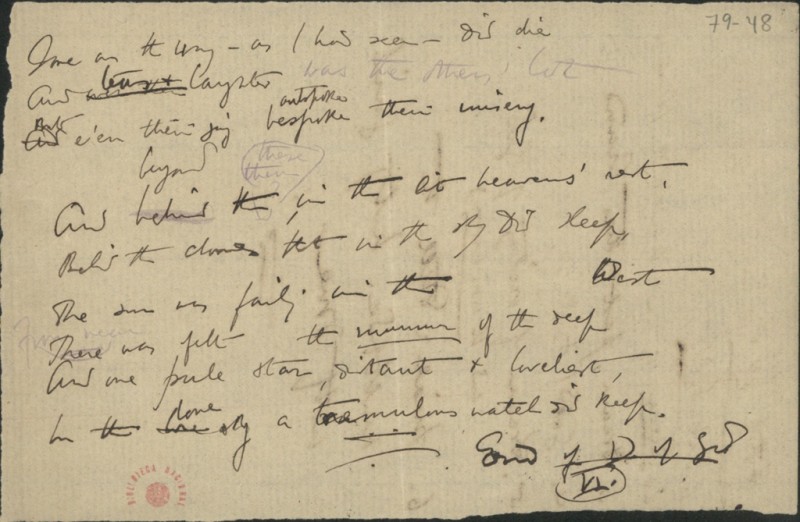 79-48
on the way - as I had seen - did die
And laughter was the others' lot
But
And e'en their joy bespoke their misery.
outspoke
beyond
these
them
And behind the, in the lit heavens' rest,
Behind the clouds that in the sky did sleep,
The sun was failing in the West
From near
There was felt the murmur of the deep
And one pale star, distant & loveliest,
In the lone sky a tremulous watch did keep.
End of D. of God
VII.
BIBLIOTECA NACIONAL